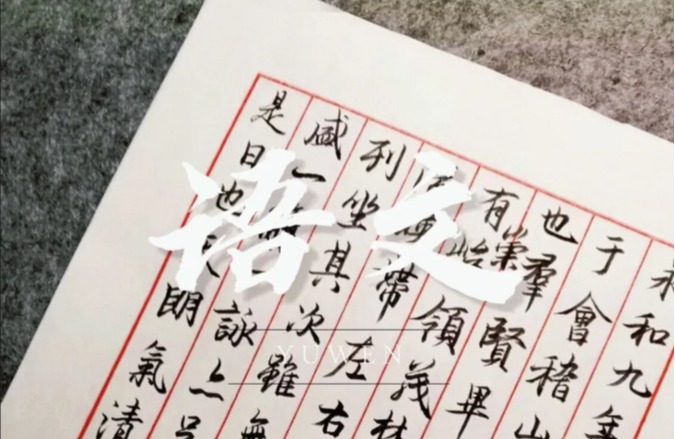 语文
YUWEN
和九年
于會稽山
也羣賢畢
有崇領茂林
帶左右
列坐其次雖無
盛一一詠亦足
是日也天朗氣清